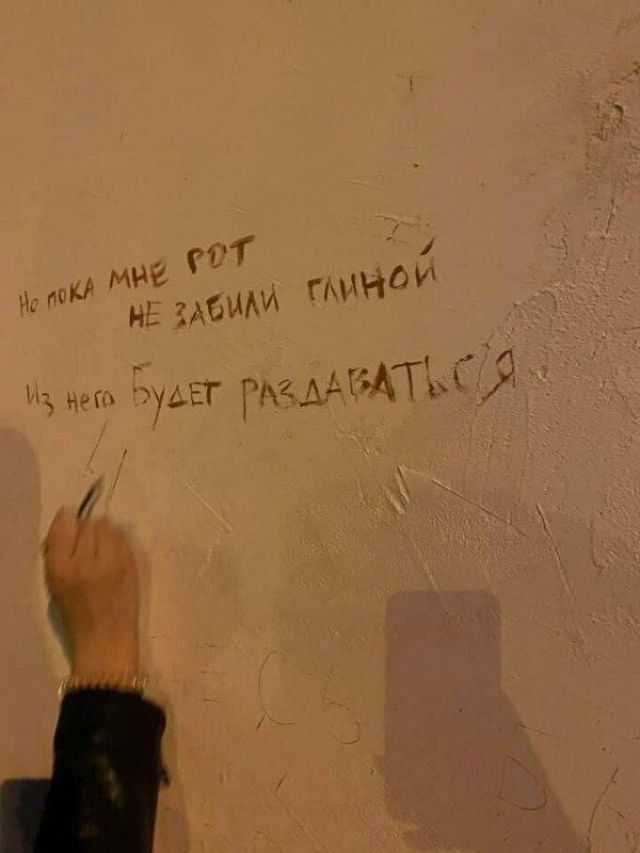 Но пока мне рот
не забили глиной
Из него будет раздаваться